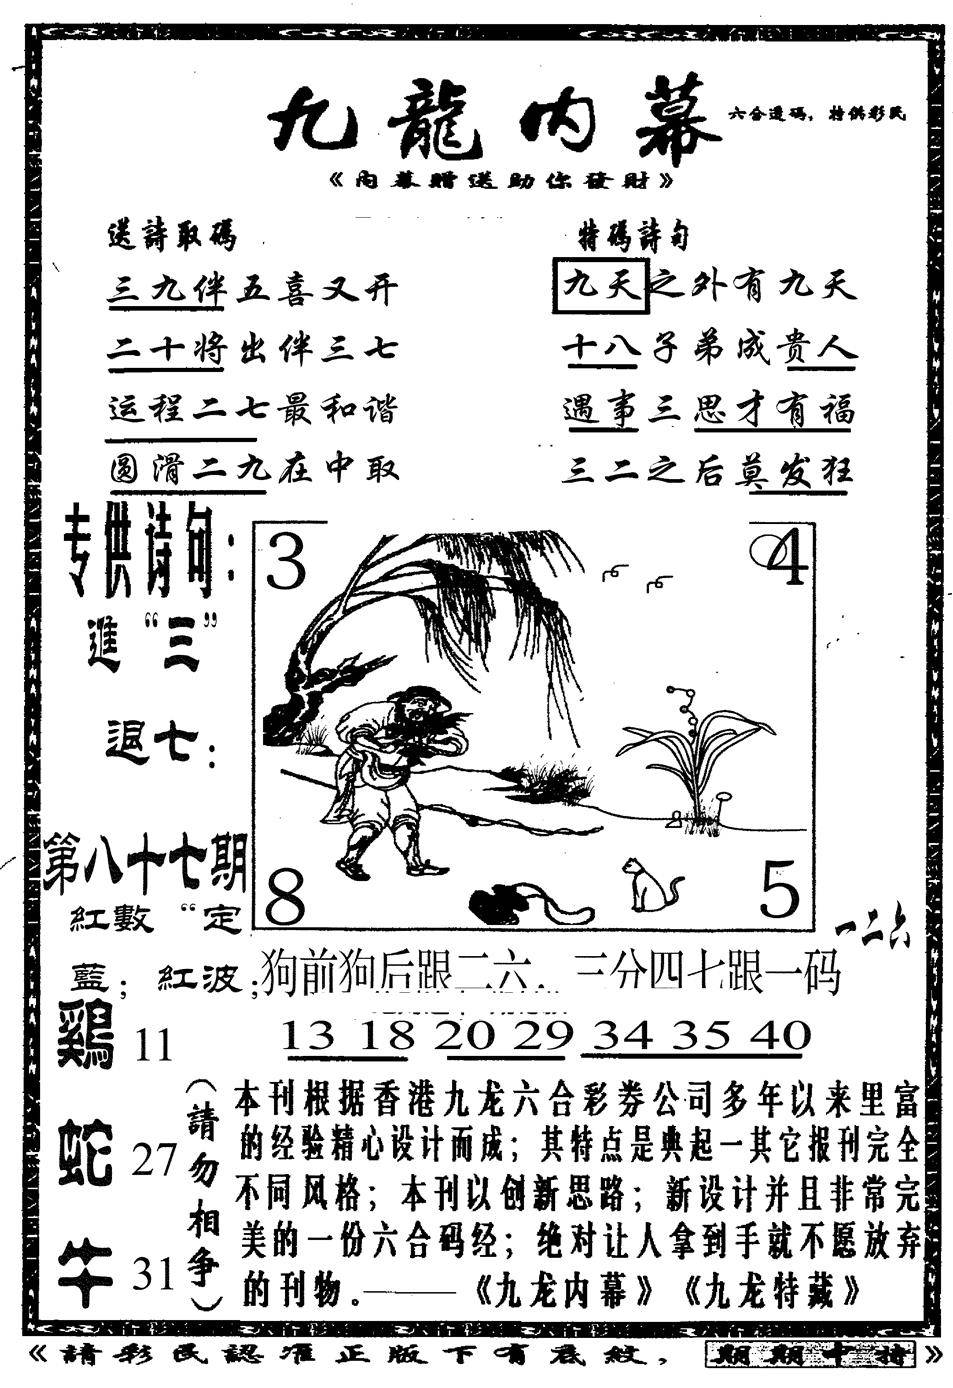 九龍内幕
六合透码，特供彩民
《内幕贈送助你發財》
送詩取碼
三九伴五喜又开
二十将出伴三七
运程二七最和谐
圆滑二九在中取
特碼詩句
九天之外有九天
十八子弟成贵人
遇事三思才有福
三二之后莫发狂
专供诗句：
進“三”
退七：
第八十七期
紅數“定
藍；紅波；
3
4
8
5
一二六
狗前狗后跟二六，三分四七跟一码
13 18 20 29 34 35 40
鷄 11
蛇 27
牛 31
（請勿相争）
本刊根据香港九龙六合彩券公司多年以来里富
的经验精心设计而成；其特点是典起一其它报刊完全
不同风格；本刊以创新思路；新设计并且非常完
美的一份六合码经；绝对让人拿到手就不愿放弃
的刊物。———《九龙内幕》《九龙特藏》
《請彩民認准正版下有底紋，期期中特》